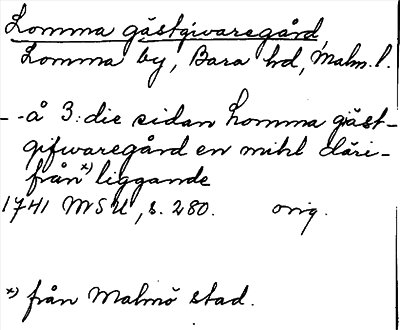 Lomma gästgivaregård,
Lomma by, Bara hd, Malm. l.
- - å 3:die sidan Lomma gäst-
gifwaregård en mihl däri-
från *) liggande
1741 MSU, s. 280. orig.
*) från Malmö stad.